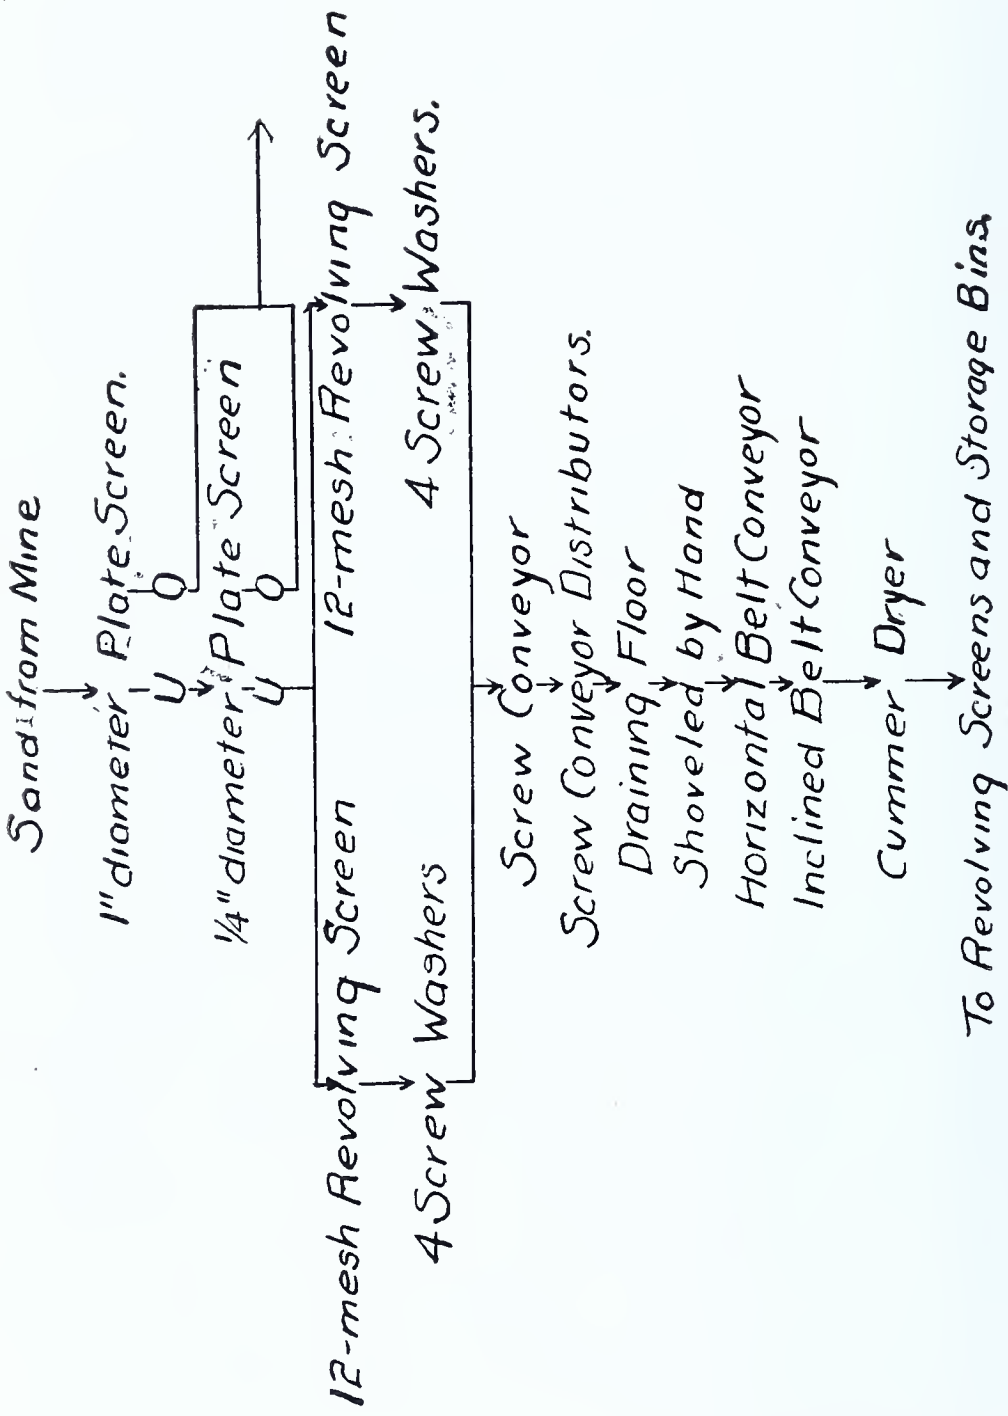 Sand from Mine
1" diameter Plate Screen.
U O
1/4" diameter Plate Screen
U O
12-mesh Revolving Screen 12-mesh Revolving Screen
4 Screw Washers 4 Screw Washers.
Screw Conveyor
Screw Conveyor Distributors.
Draining Floor
Shoveled by Hand
Horizontal Belt Conveyor
Inclined Belt Conveyor
Cummer Dryer
To Revolving Screens and Storage Bins.